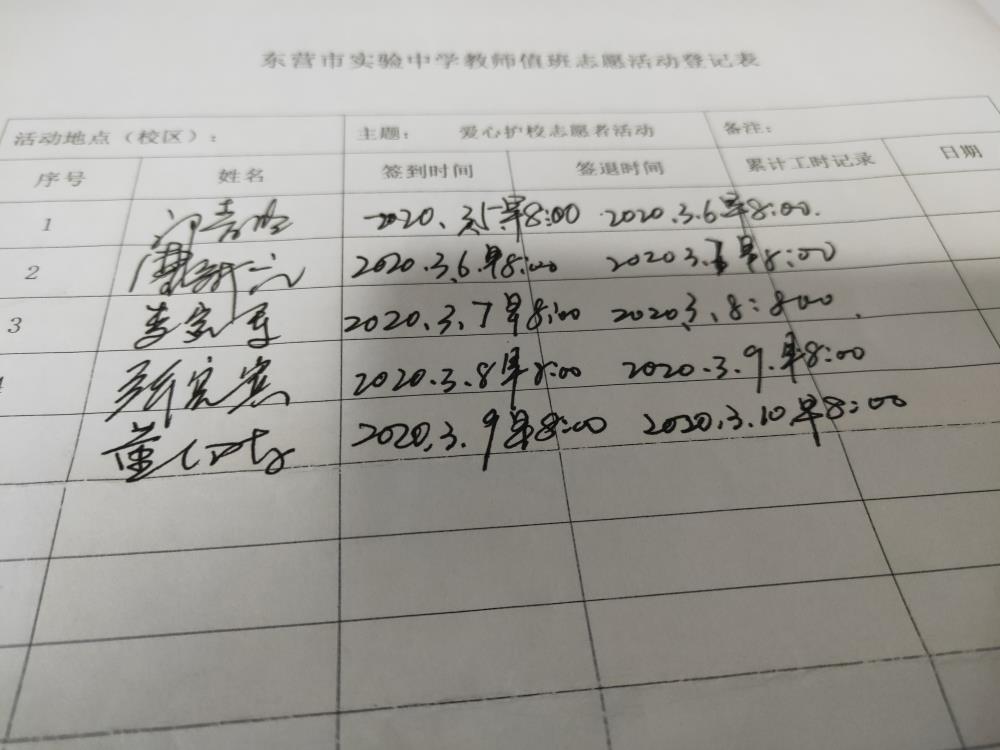 东营市实验中学教师值班志愿活动登记表
活动地点（校区）： 主题： 爱心护校志愿者活动 备注：
序号 姓名 签到时间 签退时间 累计工时记录 日期
1 2020.3.5早8:00 2020.3.6早8:00.
2 2020.3.6.早8:00 2020 3.7早8:00
3 2020.3.7早8:00 2020 3.8:800
2020.3.8早8:00 2020.3.9.早8:00
2020.3.9早8:00 2020.3.10早8:00